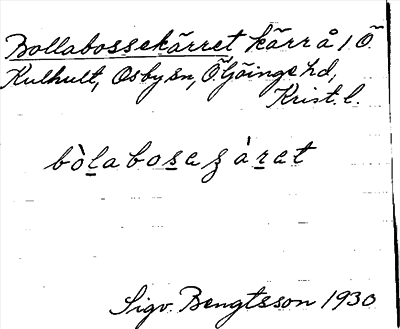 Bollabossekärret kärr å 1 Ö.
Kulhult, Osby sn, Ö. Göinge hd,
Krist. l.
bòlabosezàrat
Sigv. Bengtsson 1930